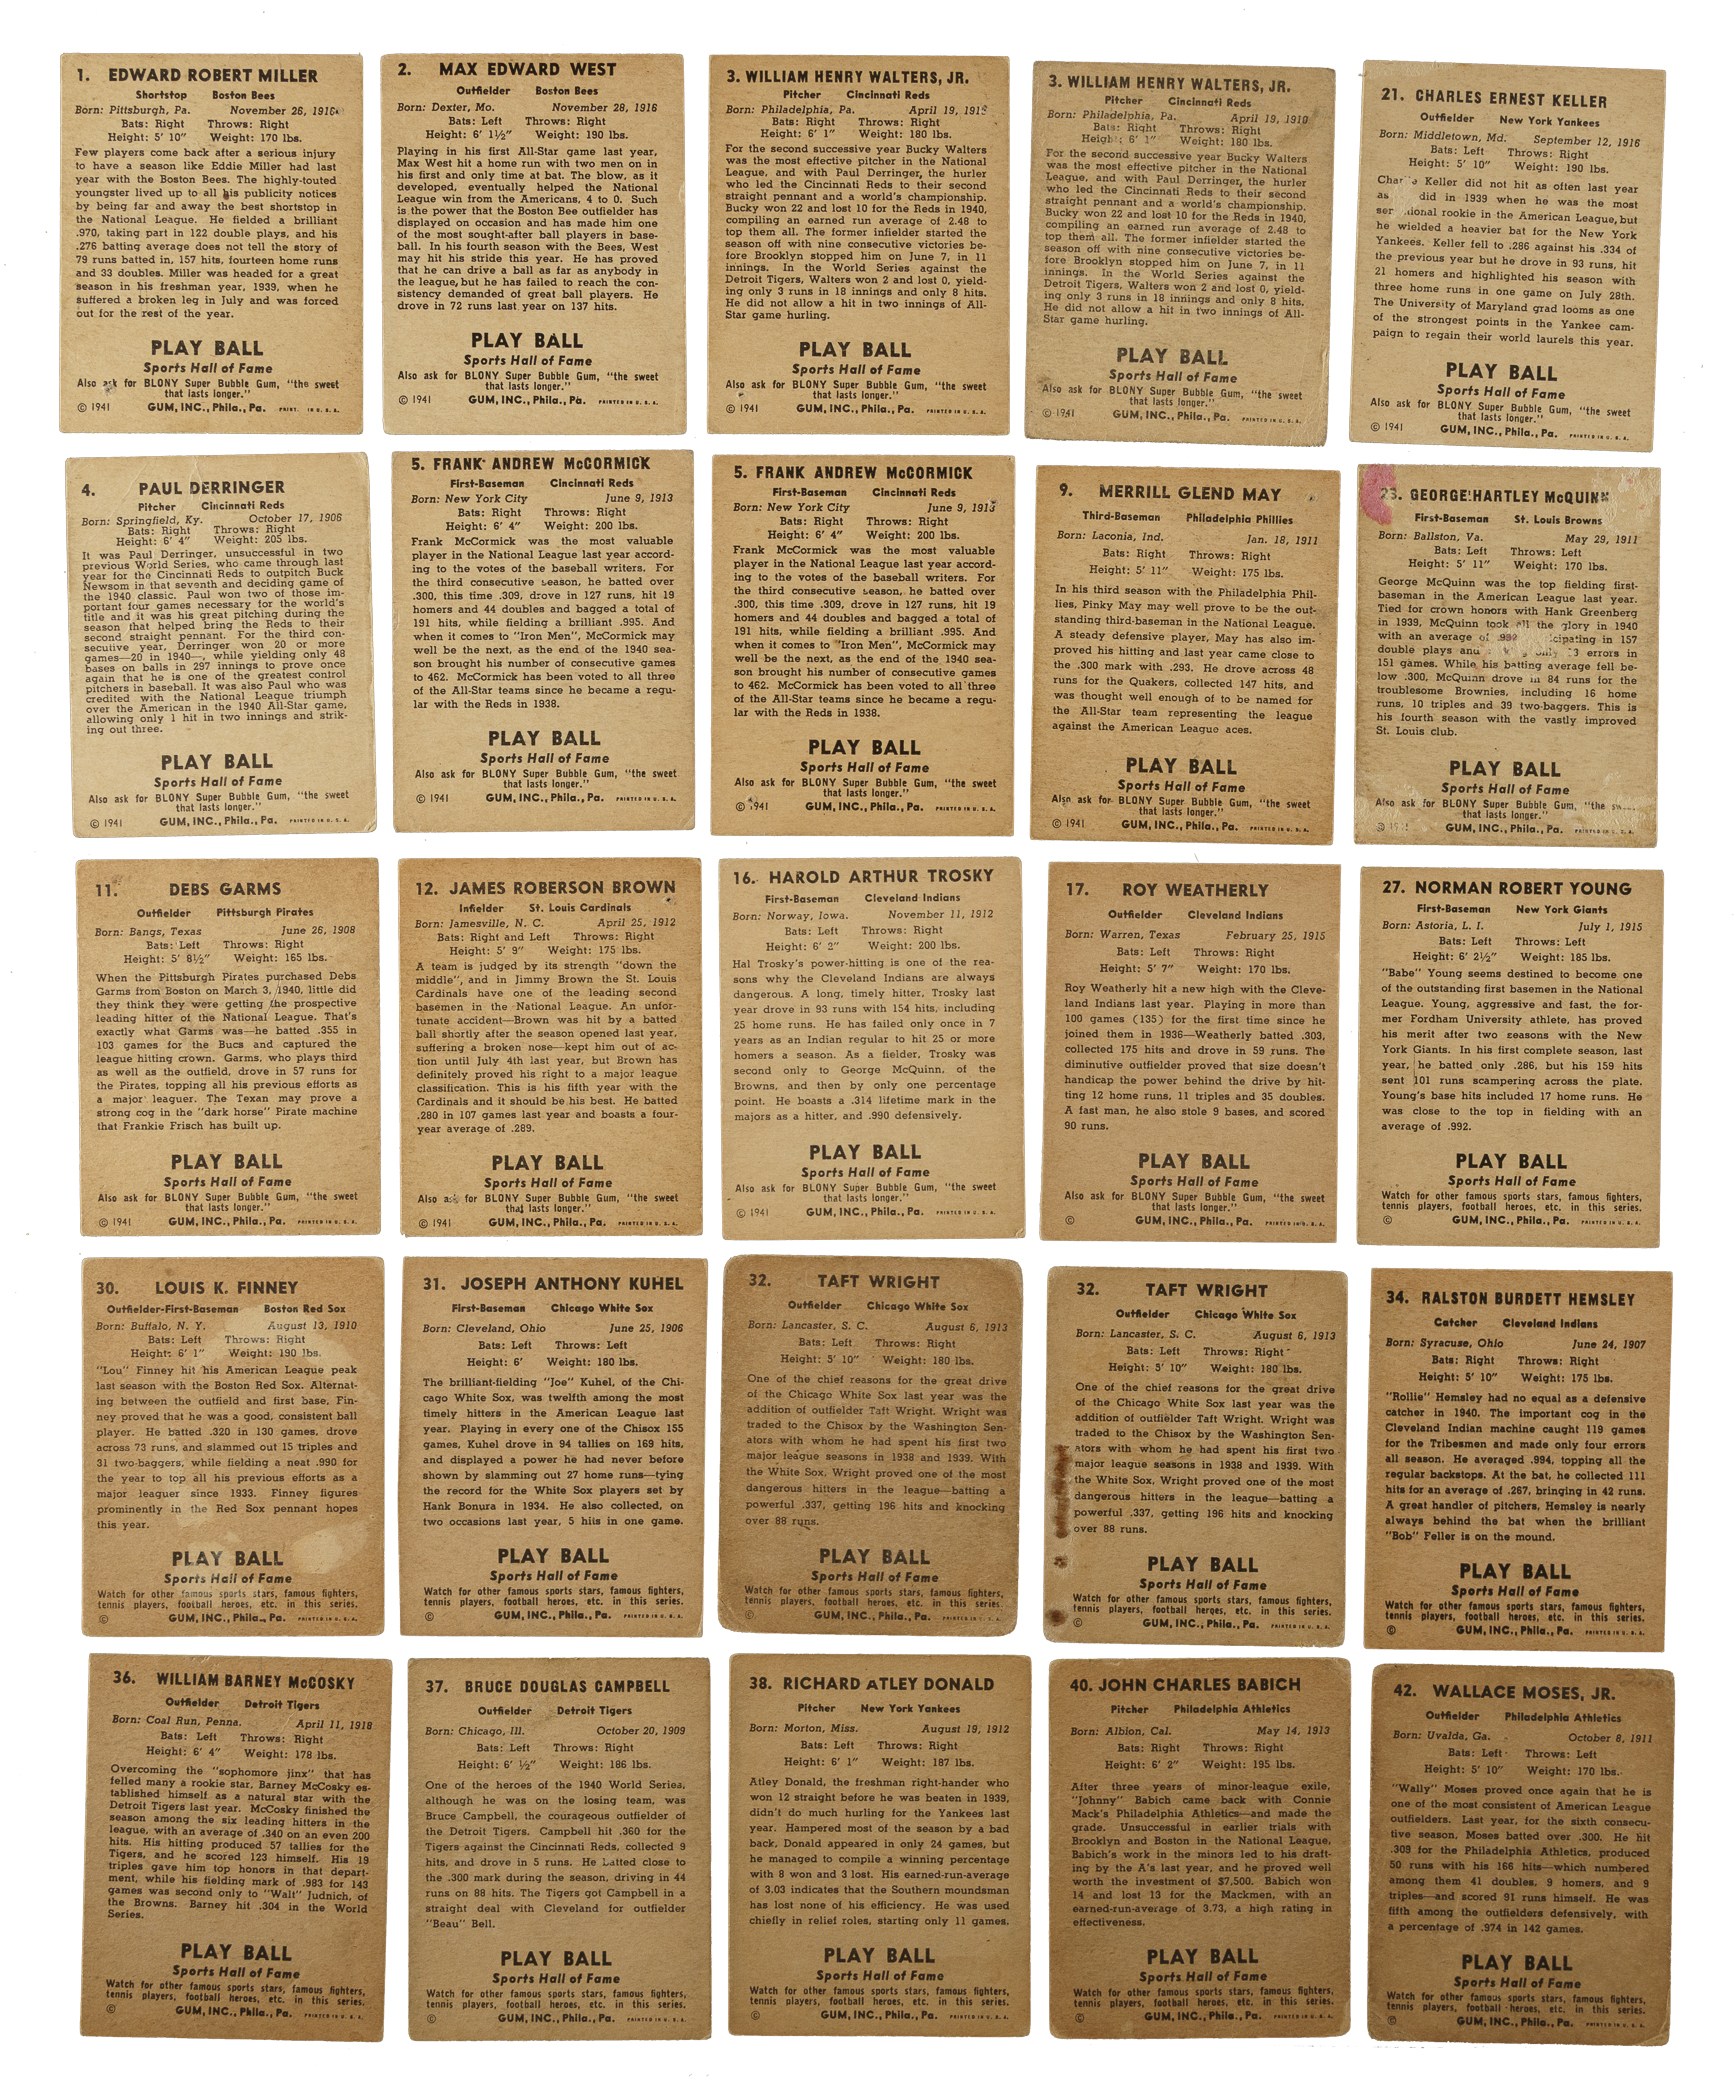 1. EDWARD ROBERT MILLER
Shortstop Boston Bees
Born: Pittsburgh, Pa. November 26, 1916
Bats: Right Throws: Right
Height: 5' 10" Weight: 170 lbs.
Few players come back after a serious injury
to have a season like Eddie Miller had last
year with the Boston Bees. The highly-touted
youngster lived up to all his publicity notices
by being far and away the best shortstop in
the National League. He fielded a brilliant
.970, taking part in 122 double plays, and his
.276 batting average does not tell the story of
79 runs batted in, 157 hits, fourteen home runs
and 33 doubles. Miller was headed for a great
season in his freshman year, 1939, when he
suffered a broken leg in July and was forced
out for the rest of the year.
PLAY BALL
Sports Hall of Fame
Also ask for BLONY Super Bubble Gum, "the sweet
that lasts longer."
© 1941 GUM, INC., Phila., Pa. PRINT. IN U. S. A.
2. MAX EDWARD WEST
Outfielder Boston Bees
Born: Dexter, Mo. November 28, 1916
Bats: Left Throws: Right
Height: 6' 1½" Weight: 190 lbs.
Playing in his first All-Star game last year,
Max West hit a home run with two men on in
his first and only time at bat. The blow, as it
developed, eventually helped the National
League win from the Americans, 4 to 0. Such
is the power that the Boston Bee outfielder has
displayed on occasion and has made him one
of the most sought-after ball players in base-
ball. In his fourth season with the Bees, West
may hit his stride this year. He has proved
that he can drive a ball as far as anybody in
the league, but he has failed to reach the con-
sistency demanded of great ball players. He
drove in 72 runs last year on 137 hits.
PLAY BALL
Sports Hall of Fame
Also ask for BLONY Super Bubble Gum, "the sweet
that lasts longer."
© 1941 GUM, INC., Phila., Pa. PRINTED IN U. S. A.
3. WILLIAM HENRY WALTERS, JR.
Pitcher Cincinnati Reds
Born: Philadelphia, Pa. April 19,
Bats: Right Throws: Right
Height: 6' 1" Weight: 180 lbs.
For the second successive year Bucky Walters
was the most effective pitcher in the National
League, and with Paul Derringer, the hurler
who led the Cincinnati Reds to their second
straight pennant and a world's championship.
Bucky won 22 and lost 10 for the Reds in 1940,
compiling an earned run average of 2.48 to
top them all. The former infielder started the
season off with nine consecutive victories be-
fore Brooklyn stopped him on June 7, in 11
innings. In the World Series against the
Detroit Tigers, Walters won 2 and lost 0, yield-
ing only 3 runs in 18 innings and only 8 hits.
He did not allow a hit in two innings of All-
Star game hurling.
PLAY BALL
Sports Hall of Fame
Also ask for BLONY Super Bubble Gum, "the sweet
that lasts longer."
© 1941 GUM, INC., Phila., Pa. PRINTED IN U. S. A.
3. WILLIAM HENRY WALTERS, JR.
Pitcher Cincinnati Reds
Born: Philadelphia, Pa. April 19, 1910
Bats: Right Throws: Right
Height: 6' 1" Weight: 180 lbs.
For the second successive year Bucky Walters
was the most effective pitcher in the National
League, and with Paul Derringer, the hurler
who led the Cincinnati Reds to their second
straight pennant and a world's championship.
Bucky won 22 and lost 10 for the Reds in 1940,
compiling an earned run average of 2.48 to
top them all. The former infielder started the
season off with nine consecutive victories be-
fore Brooklyn stopped him on June 7, in 11
innings. In the World Series against the
Detroit Tigers, Walters won 2 and lost 0, yield-
ing only 3 runs in 18 innings and only 8 hits.
He did not allow a hit in two innings of All-
Star game hurling.
PLAY BALL
Sports Hall of Fame
Also ask for BLONY Super Bubble Gum, "the sweet
that lasts longer."
© 1941 GUM, INC., Phila., Pa. PRINTED IN U. S. A.
21. CHARLES ERNEST KELLER
Outfielder New York Yankees
Born: Middletown, Md. September 12, 1916
Bats: Left Throws: Right
Height: 5' 10" Weight: 190 lbs.
Keller did not hit as often last year
as did in 1939 when he was the most
rookie in the American League, but
he wielded a heavier bat for the New York
Yankees. Keller fell to .286 against his .334 of
the previous year but he drove in 93 runs, hit
21 homers and highlighted his season with
three home runs in one game on July 28th.
The University of Maryland grad looms as one
of the strongest points in the Yankee cam-
paign to regain their world laurels this year.
PLAY BALL
Sports Hall of Fame
Also ask for BLONY Super Bubble Gum, "the sweet
that lasts longer."
© 1941 GUM, INC., Phila., Pa. PRINTED IN U. S. A.
4. PAUL DERRINGER
Pitcher Cincinnati Reds
Born: Springfield, Ky. October 17, 1906
Bats: Right Throws: Right
Height: 6' 4" Weight: 205 lbs.
It was Paul Derringer, unsuccessful in two
previous World Series, who came through last
year for the Cincinnati Reds to outpitch Buck
Newsom in that seventh and deciding game of
the 1940 classic. Paul won two of those im-
portant four games necessary for the world's
title and it was his great pitching during the
season that helped bring the Reds to their
second straight pennant. For the third con-
secutive year, Derringer won 20 or more
games—20 in 1940—, while yielding only 48
bases on balls in 297 innings to prove once
again that he is one of the greatest control
pitchers in baseball. It was also Paul who was
credited with the National League triumph
over the American in the 1940 All-Star game,
allowing only 1 hit in two innings and strik-
ing out three.
PLAY BALL
Sports Hall of Fame
Also ask for BLONY Super Bubble Gum, "the sweet
that lasts longer."
© 1941 GUM, INC., Phila., Pa. PRINTED IN U. S. A.
5. FRANK ANDREW McCORMICK
First-Baseman Cincinnati Reds
Born: New York City June 9, 1913
Bats: Right Throws: Right
Height: 6' 4" Weight: 200 lbs.
Frank McCormick was the most valuable
player in the National League last year accord-
ing to the votes of the baseball writers. For
the third consecutive season, he batted over
.300, this time .309, drove in 127 runs, hit 19
homers and 44 doubles and bagged a total of
191 hits, while fielding a brilliant .995. And
when it comes to "Iron Men", McCormick may
well be the next, as the end of the 1940 sea-
son brought his number of consecutive games
to 462. McCormick has been voted to all three
of the All-Star teams since he became a regu-
lar with the Reds in 1938.
PLAY BALL
Sports Hall of Fame
Also ask for BLONY Super Bubble Gum, "the sweet
that lasts longer."
© 1941 GUM, INC., Phila., Pa. PRINTED IN U. S. A.
5. FRANK ANDREW McCORMICK
First-Baseman Cincinnati Reds
Born: New York City June 9, 1913
Bats: Right Throws: Right
Height: 6' 4" Weight: 200 lbs.
Frank McCormick was the most valuable
player in the National League last year accord-
ing to the votes of the baseball writers. For
the third consecutive season, he batted over
.300, this time .309, drove in 127 runs, hit 19
homers and 44 doubles and bagged a total of
191 hits, while fielding a brilliant .995. And
when it comes to "Iron Men", McCormick may
well be the next, as the end of the 1940 sea-
son brought his number of consecutive games
to 462. McCormick has been voted to all three
of the All-Star teams since he became a regu-
lar with the Reds in 1938.
PLAY BALL
Sports Hall of Fame
Also ask for BLONY Super Bubble Gum, "the sweet
that lasts longer."
© 1941 GUM, INC., Phila., Pa. PRINTED IN U. S. A.
9. MERRILL GLEND MAY
Third-Baseman Philadelphia Phillies
Born: Laconia, Ind. Jan. 18, 1911
Bats: Right Throws: Right
Height: 5' 11" Weight: 175 lbs.
In his third season with the Philadelphia Phil-
lies, Pinky May may well prove to be the out-
standing third-baseman in the National League.
A steady defensive player, May has also im-
proved his hitting and last year came close to
the .300 mark with .293. He drove across 48
runs for the Quakers, collected 147 hits, and
was thought well enough of to be named for
the All-Star team representing the league
against the American League aces.
PLAY BALL
Sports Hall of Fame
Also ask for BLONY Super Bubble Gum, "the sweet
that lasts longer."
© 1941 GUM, INC., Phila., Pa. PRINTED IN U. S. A.
23. GEORGE HARTLEY McQUINN
First-Baseman St. Louis Browns
Born: Ballston, Va. May 29, 1911
Bats: Left Throws: Left
Height: 5' 11" Weight: 170 lbs.
George McQuinn was the top fielding first-
baseman in the American League last year.
Tied for crown honors with Hank Greenberg
in 1939, McQuinn took all the glory in 1940
with an average of in 157
double plays and only errors in
151 games. While his batting average fell be-
low .300, McQuinn drove in 84 runs for the
troublesome Brownies, including 16 home
runs, 10 triples and 39 two-baggers. This is
his fourth season with the vastly improved
St. Louis club.
PLAY BALL
Sports Hall of Fame
Also ask for BLONY Super Bubble Gum, "the
that lasts longer."
© GUM, INC., Phila., Pa. PRINTED IN U. S. A.
11. DEBS GARMS
Outfielder Pittsburgh Pirates
Born: Bangs, Texas June 26, 1908
Bats: Left Throws: Right
Height: 5' 8½" Weight: 165 lbs.
When the Pittsburgh Pirates purchased Debs
Garms from Boston on March 3, 1940, little did
they think they were getting the prospective
leading hitter of the National League. That's
exactly what Garms was—he batted .355 in
103 games for the Bucs and captured the
league hitting crown. Garms, who plays third
as well as the outfield, drove in 57 runs for
the Pirates, topping all his previous efforts as
a major leaguer. The Texan may prove a
strong cog in the "dark horse" Pirate machine
that Frankie Frisch has built up.
PLAY BALL
Sports Hall of Fame
Also ask for BLONY Super Bubble Gum, "the sweet
that lasts longer."
© 1941 GUM, INC., Phila., Pa. PRINTED IN U. S. A.
12. JAMES ROBERSON BROWN
Infielder St. Louis Cardinals
Born: Jamesville, N. C. April 25, 1912
Bats: Right and Left Throws: Right
Height: 5' 9" Weight: 175 lbs.
A team is judged by its strength "down the
middle", and in Jimmy Brown the St. Louis
Cardinals have one of the leading second
basemen in the National League. An unfor-
tunate accident—Brown was hit by a batted
ball shortly after the season opened last year,
suffering a broken nose—kept him out of ac-
tion until July 4th last year, but Brown has
definitely proved his right to a major league
classification. This is his fifth year with the
Cardinals and it should be his best. He batted
.280 in 107 games last year and boasts a four-
year average of .289.
PLAY BALL
Sports Hall of Fame
Also ask for BLONY Super Bubble Gum, "the sweet
that lasts longer."
© 1941 GUM, INC., Phila., Pa. PRINTED IN U. S. A.
16. HAROLD ARTHUR TROSKY
First-Baseman Cleveland Indians
Born: Norway, Iowa. November 11, 1912
Bats: Left Throws: Right
Height: 6' 2" Weight: 200 lbs.
Hal Trosky's power-hitting is one of the rea-
sons why the Cleveland Indians are always
dangerous. A long, timely hitter, Trosky last
year drove in 93 runs with 154 hits, including
25 home runs. He has failed only once in 7
years as an Indian regular to hit 25 or more
homers a season. As a fielder, Trosky was
second only to George McQuinn, of the
Browns, and then by only one percentage
point. He boasts a .314 lifetime mark in the
majors as a hitter, and .990 defensively.
PLAY BALL
Sports Hall of Fame
Also ask for BLONY Super Bubble Gum, "the sweet
that lasts longer."
© 1941 GUM, INC., Phila., Pa. PRINTED IN U. S. A.
17. ROY WEATHERLY
Outfielder Cleveland Indians
Born: Warren, Texas February 25, 1915
Bats: Left Throws: Right
Height: 5' 7" Weight: 170 lbs.
Roy Weatherly hit a new high with the Cleve-
land Indians last year. Playing in more than
100 games (135) for the first time since he
joined them in 1936—Weatherly batted .303,
collected 175 hits and drove in 59 runs. The
diminutive outfielder proved that size doesn't
handicap the power behind the drive by hit-
ting 12 home runs, 11 triples and 35 doubles.
A fast man, he also stole 9 bases, and scored
90 runs.
PLAY BALL
Sports Hall of Fame
Also ask for BLONY Super Bubble Gum, "the sweet
that lasts longer."
© GUM, INC., Phila., Pa. PRINTED IN U. S. A.
27. NORMAN ROBERT YOUNG
First-Baseman New York Giants
Born: Astoria, L. I. July 1, 1915
Bats: Left Throws: Left
Height: 6' 2½" Weight: 185 lbs.
"Babe" Young seems destined to become one
of the outstanding first basemen in the National
League. Young, aggressive and fast, the for-
mer Fordham University athlete, has proved
his merit after two seasons with the New
York Giants. In his first complete season, last
year, he batted only .286, but his 159 hits
sent 101 runs scampering across the plate.
Young's base hits included 17 home runs. He
was close to the top in fielding with an
average of .992.
PLAY BALL
Sports Hall of Fame
Watch for other famous sports stars, famous fighters,
tennis players, football heroes, etc. in this series.
© GUM, INC., Phila., Pa. PRINTED IN U. S. A.
30. LOUIS K. FINNEY
Outfielder-First-Baseman Boston Red Sox
Born: Buffalo, N. Y. August 13, 1910
Bats: Left Throws: Right
Height: 6' 1" Weight: 190 lbs.
"Lou" Finney hit his American League peak
last season with the Boston Red Sox. Alternat-
ing between the outfield and first base, Fin-
ney proved that he was a good, consistent ball
player. He batted .320 in 130 games, drove
across 73 runs, and slammed out 15 triples and
31 two-baggers, while fielding a neat .990 for
the year to top all his previous efforts as a
major leaguer since 1933. Finney figures
prominently in the Red Sox pennant hopes
this year.
PLAY BALL
Sports Hall of Fame
Watch for other famous sports stars, famous fighters,
tennis players, football heroes, etc. in this series.
© GUM, INC., Phila., Pa. PRINTED IN U. S. A.
31. JOSEPH ANTHONY KUHEL
First-Baseman Chicago White Sox
Born: Cleveland, Ohio June 25, 1906
Bats: Left Throws: Left
Height: 6' Weight: 180 lbs.
The brilliant-fielding "Joe" Kuhel, of the Chi-
cago White Sox, was twelfth among the most
timely hitters in the American League last
year. Playing in every one of the Chisox 155
games, Kuhel drove in 94 tallies on 169 hits,
and displayed a power he had never before
shown by slamming out 27 home runs—tying
the record for the White Sox players set by
Hank Bonura in 1934. He also collected, on
two occasions last year, 5 hits in one game.
PLAY BALL
Sports Hall of Fame
Watch for other famous sports stars, famous fighters,
tennis players, football heroes, etc. in this series.
© GUM, INC., Phila., Pa. PRINTED IN U. S. A.
32. TAFT WRIGHT
Outfielder Chicago White Sox
Born: Lancaster, S. C. August 6, 1913
Bats: Left Throws: Right
Height: 5' 10" Weight: 180 lbs.
One of the chief reasons for the great drive
of the Chicago White Sox last year was the
addition of outfielder Taft Wright. Wright was
traded to the Chisox by the Washington Sen-
ators with whom he had spent his first two
major league seasons in 1938 and 1939. With
the White Sox, Wright proved one of the most
dangerous hitters in the league—batting a
powerful .337, getting 196 hits and knocking
over 88 runs.
PLAY BALL
Sports Hall of Fame
Watch for other famous sports stars, famous fighters,
tennis players, football heroes, etc. in this series.
© GUM, INC., Phila., Pa. PRINTED IN U. S. A.
32. TAFT WRIGHT
Outfielder Chicago White Sox
Born: Lancaster, S. C. August 6, 1913
Bats: Left Throws: Right
Height: 5' 10" Weight: 180 lbs.
One of the chief reasons for the great drive
of the Chicago White Sox last year was the
addition of outfielder Taft Wright. Wright was
traded to the Chisox by the Washington Sen-
ators with whom he had spent his first two
major league seasons in 1938 and 1939. With
the White Sox, Wright proved one of the most
dangerous hitters in the league—batting a
powerful .337, getting 196 hits and knocking
over 88 runs.
PLAY BALL
Sports Hall of Fame
Watch for other famous sports stars, famous fighters,
tennis players, football heroes, etc. in this series.
© GUM, INC., Phila., Pa. PRINTED IN U. S. A.
34. RALSTON BURDETT HEMSLEY
Catcher Cleveland Indians
Born: Syracuse, Ohio June 24, 1907
Bats: Right Throws: Right
Height: 5' 10" Weight: 175 lbs.
"Rollie" Hemsley had no equal as a defensive
catcher in 1940. The important cog in the
Cleveland Indian machine caught 119 games
for the Tribesmen and made only four errors
all season. He averaged .994, topping all the
regular backstops. At the bat, he collected 111
hits for an average of .267, bringing in 42 runs.
A great handler of pitchers, Hemsley is nearly
always behind the bat when the brilliant
"Bob" Feller is on the mound.
PLAY BALL
Sports Hall of Fame
Watch for other famous sports stars, famous fighters,
tennis players, football heroes, etc. in this series.
© GUM, INC., Phila., Pa. PRINTED IN U. S. A.
36. WILLIAM BARNEY McCOSKY
Outfielder Detroit Tigers
Born: Coal Run, Penna. April 11, 1918
Bats: Left Throws: Right
Height: 6' 4" Weight: 178 lbs.
Overcoming the "sophomore jinx" that has
felled many a rookie star, Barney McCosky es-
tablished himself as a natural star with the
Detroit Tigers last year. McCosky finished the
season among the six leading hitters in the
league, with an average of .340 on an even 200
hits. His hitting produced 57 tallies for the
Tigers, and he scored 123 himself. His 19
triples gave him top honors in that depart-
ment, while his fielding mark of .983 for 143
games was second only to "Walt" Judnich, of
the Browns. Barney hit .304 in the World
Series.
PLAY BALL
Sports Hall of Fame
Watch for other famous sports stars, famous fighters,
tennis players, football heroes, etc. in this series.
© GUM, INC., Phila., Pa. PRINTED IN U. S. A.
37. BRUCE DOUGLAS CAMPBELL
Outfielder Detroit Tigers
Born: Chicago, Ill. October 20, 1909
Bats: Left Throws: Right
Height: 6' ½" Weight: 186 lbs.
One of the heroes of the 1940 World Series,
although he was on the losing team, was
Bruce Campbell, the courageous outfielder of
the Detroit Tigers. Campbell hit .360 for the
Tigers against the Cincinnati Reds, collected 9
hits, and drove in 5 runs. He batted close to
the .300 mark during the season, driving in 44
runs on 88 hits. The Tigers got Campbell in a
straight deal with Cleveland for outfielder
"Beau" Bell.
PLAY BALL
Sports Hall of Fame
Watch for other famous sports stars, famous fighters,
tennis players, football heroes, etc. in this series.
© GUM, INC., Phila., Pa. PRINTED IN U. S. A.
38. RICHARD ATLEY DONALD
Pitcher New York Yankees
Born: Morton, Miss. August 19, 1912
Bats: Left Throws: Right
Height: 6' 1" Weight: 187 lbs.
Atley Donald, the freshman right-hander who
won 12 straight before he was beaten in 1939,
didn't do much hurling for the Yankees last
year. Hampered most of the season by a bad
back, Donald appeared in only 24 games, but
he managed to compile a winning percentage
with 8 won and 3 lost. His earned-run-average
of 3.03 indicates that the Southern moundsman
has lost none of his efficiency. He was used
chiefly in relief roles, starting only 11 games.
PLAY BALL
Sports Hall of Fame
Watch for other famous sports stars, famous fighters,
tennis players, football heroes, etc. in this series.
© GUM, INC., Phila., Pa. PRINTED IN U. S. A.
40. JOHN CHARLES BABICH
Pitcher Philadelphia Athletics
Born: Albion, Cal. May 14, 1913
Bats: Right Throws: Right
Height: 6' 2" Weight: 195 lbs.
After three years of minor-league exile,
"Johnny" Babich came back with Connie
Mack's Philadelphia Athletics—and made the
grade. Unsuccessful in earlier trials with
Brooklyn and Boston in the National League,
Babich's work in the minors led to his draft-
ing by the A's last year, and he proved well
worth the investment of $7,500. Babich won
14 and lost 13 for the Mackmen, with an
earned-run-average of 3.73, a high rating in
effectiveness.
PLAY BALL
Sports Hall of Fame
Watch for other famous sports stars, famous fighters,
tennis players, football heroes, etc. in this series.
© GUM, INC., Phila., Pa. PRINTED IN U. S. A.
42. WALLACE MOSES, JR.
Outfielder Philadelphia Athletics
Born: Uvalda, Ga. October 8, 1911
Bats: Left Throws: Left
Height: 5' 10" Weight: 170 lbs.
"Wally" Moses proved once again that he is
one of the most consistent of American League
outfielders. Last year, for the sixth consecu-
tive season, Moses batted over .300. He hit
.309 for the Philadelphia Athletics, produced
50 runs with his 166 hits—which numbered
among them 41 doubles, 9 homers, and 9
triples—and scored 91 runs himself. He was
fifth among the outfielders defensively, with
a percentage of .974 in 142 games.
PLAY BALL
Sports Hall of Fame
Watch for other famous sports stars, famous fighters,
tennis players, football heroes, etc. in this series.
© GUM, INC., Phila., Pa. PRINTED IN U. S. A.